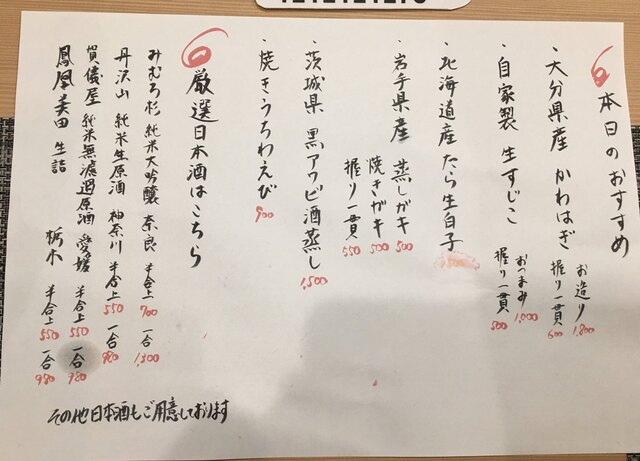 本日のおすすめ
・大分県産 かわはぎ お造り 1,800
握り一貫 600
・自家製 生すじこ おつまみ 1,000
握り一貫 500
・北海道産 たら生白子
・岩手県産 蒸しガキ 500
焼きガキ 500
握り一貫 550
・茨城県 黒アワビ酒蒸し 1,500
・焼きうちわえび 900
厳選日本酒はこちら
みむろ杉 純米大吟醸 奈良 半合上 700 一合 1,300
丹沢山 純米生原酒 神奈川 半合上 550 一合 980
賀儀屋 純米無濾過原酒 愛媛 半合上 550 一合 980
鳳凰美田 生詰 栃木 半合上 550 一合 980
その他日本酒もご用意しております